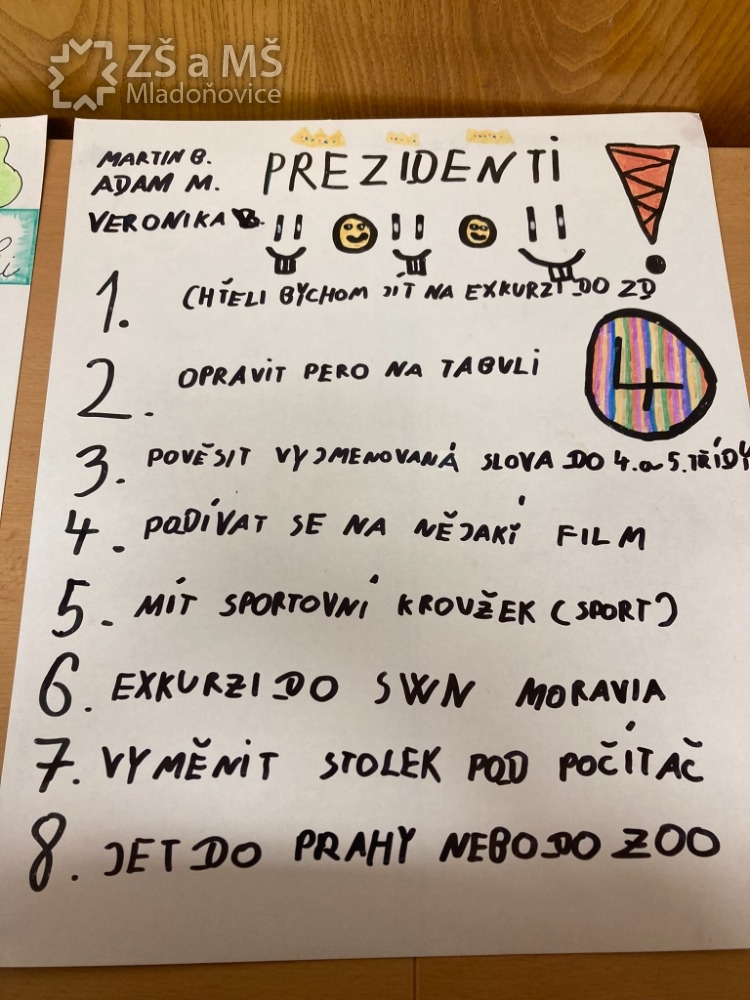 ZŠ a MŠ
Mladoňovice
MARTIN B.
ADAM M.
VERONIKA B.
PREZIDENTI
!
1. CHTĚLI BYCHOM JÍT NA EXKURZI DO ZD
4
2. OPRAVIT PERO NA TABULI
3. POVĚSIT VYJMENOVANÁ SLOVA DO 4. a 5. TŘÍDY
4. PODÍVAT SE NA NĚJAKÍ FILM
5. MÍT SPORTOVNÍ KROUŽEK (SPORT)
6. EXKURZI DO SWN MORAVIA
7. VYMĚNIT STOLEK POD POČÍTAČ
8. JET DO PRAHY NEBO DO ZOO